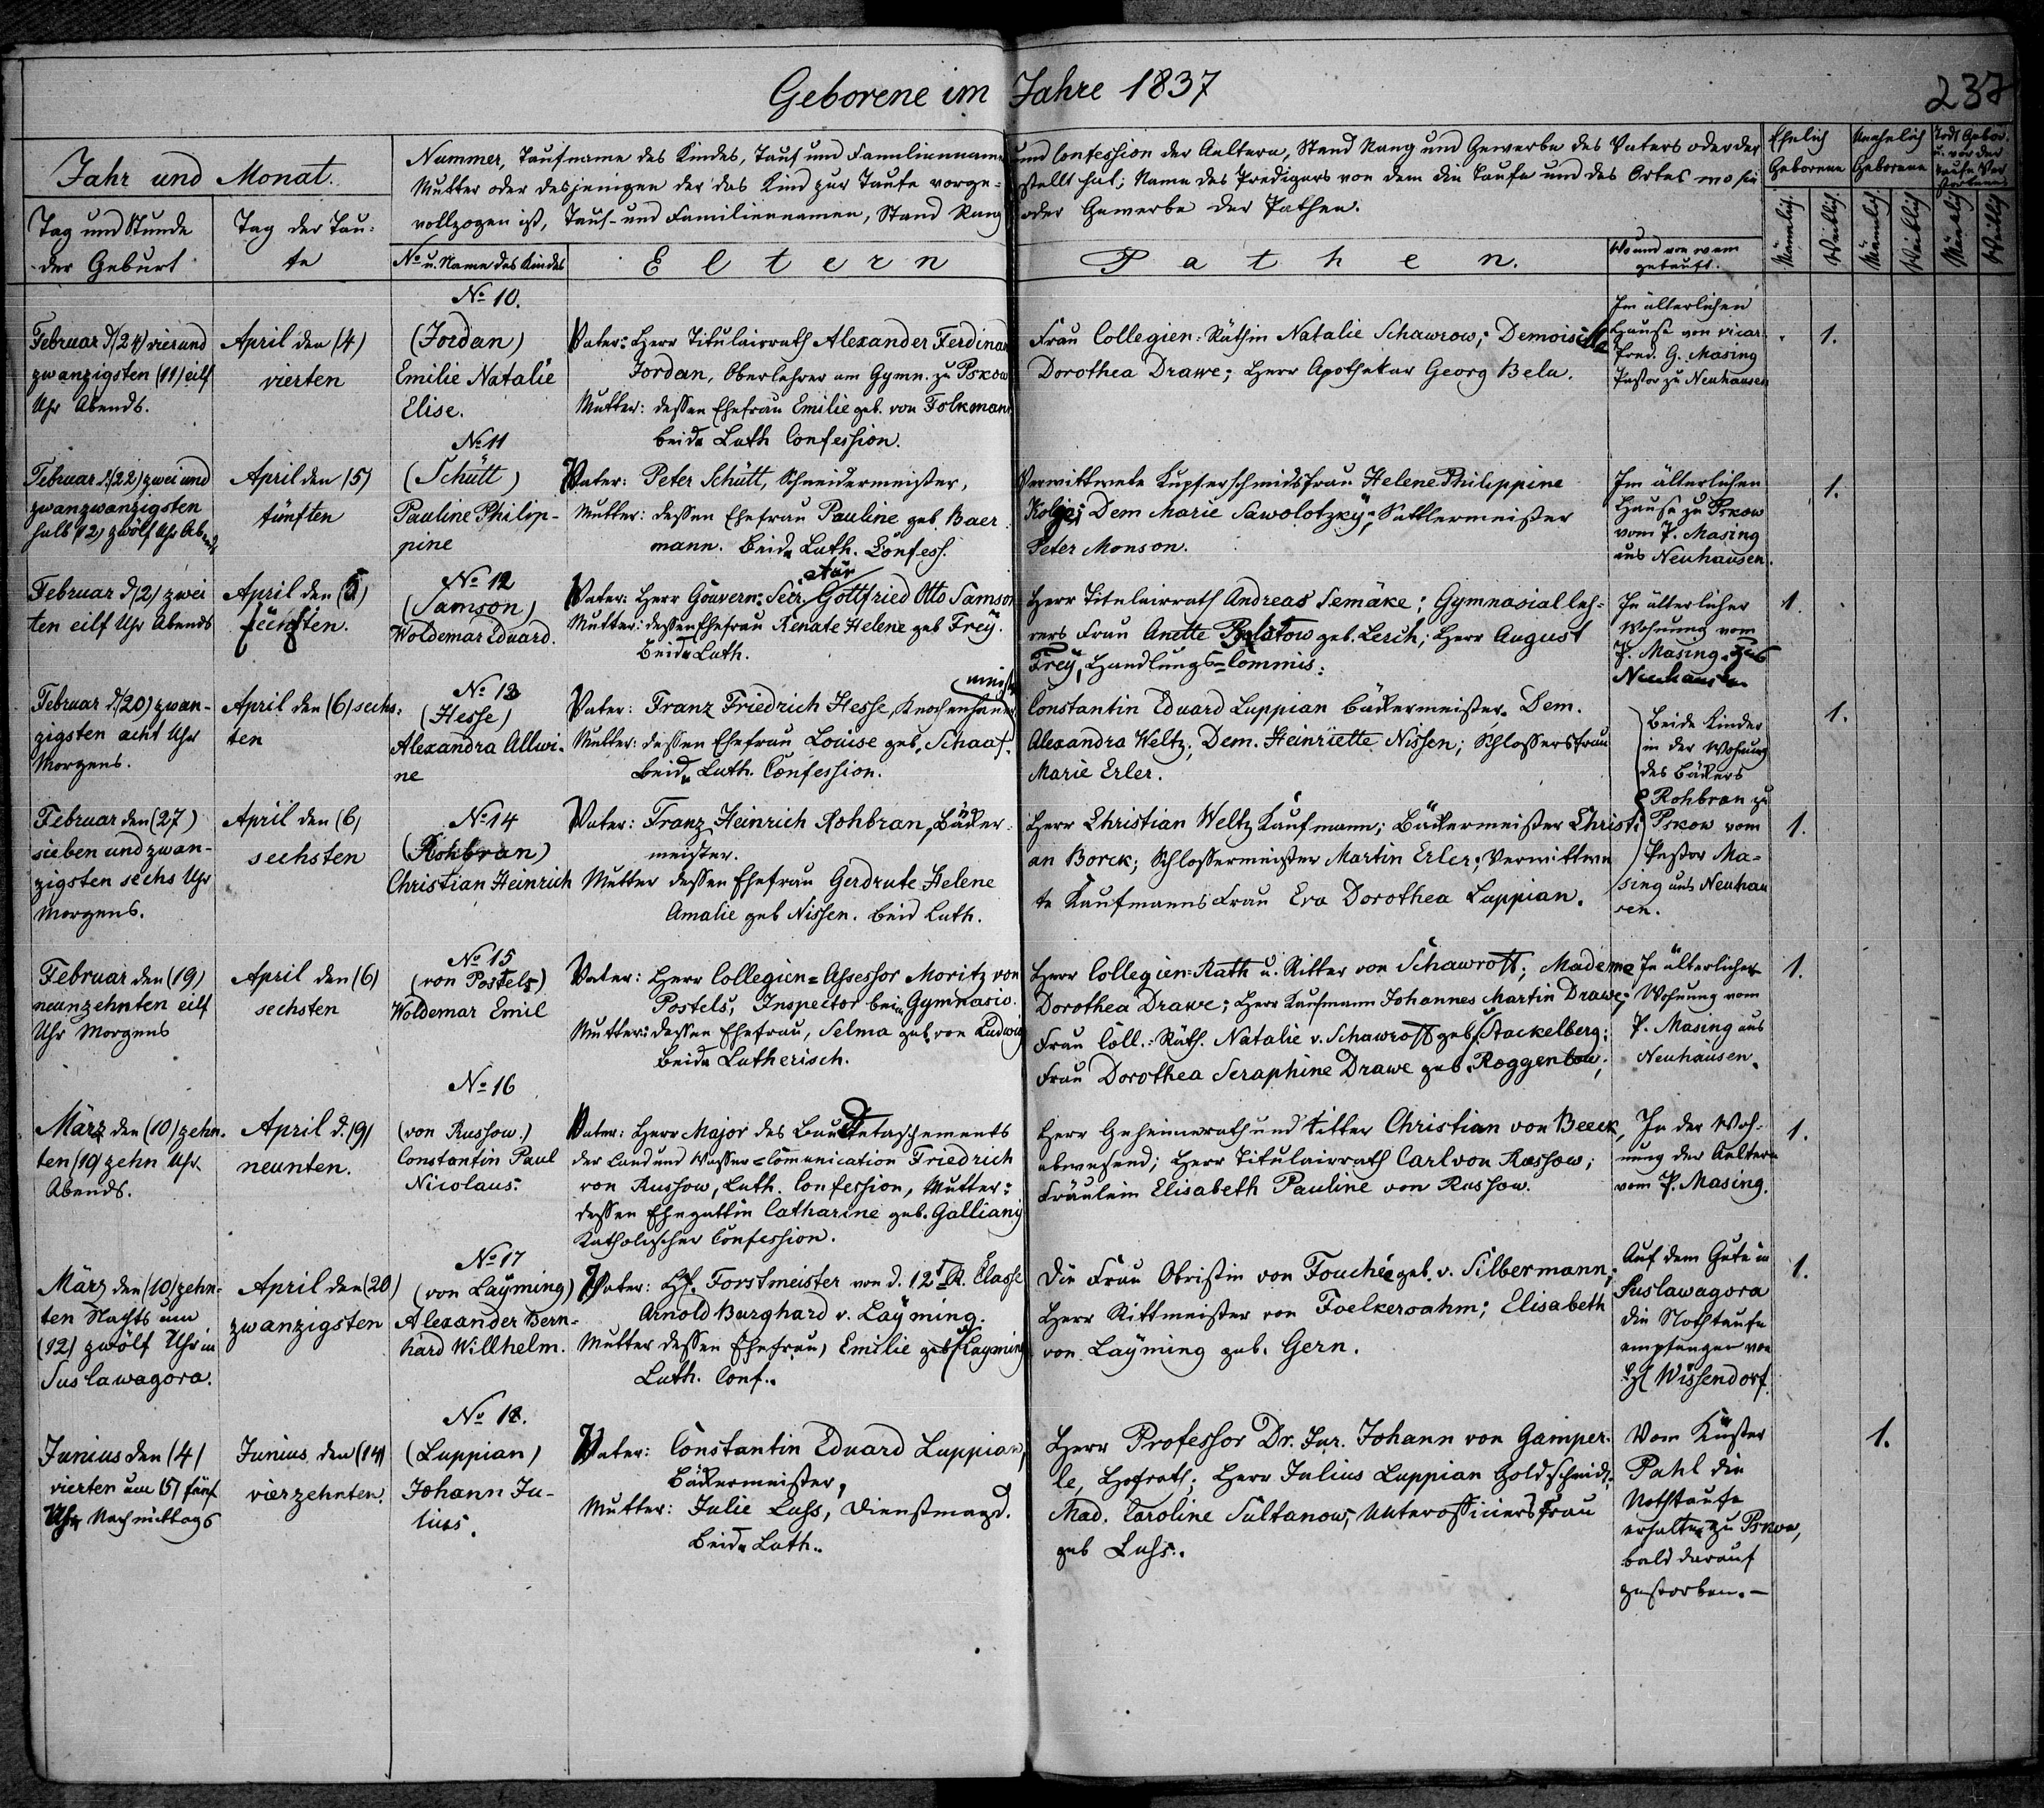 Geborene im Jahre 1837
237
Jahr und Monat.
Nummer, Taufname des Kindes, Tauf und Familienname und Confession der Aeltern, Stand Rang und Gewerbe des Vaters oder der
Mutter oder desjenigen der das Kind zur Taufe vorge= stellt hat; Name des Predigers von dem die Taufe und des Ortes wo sie
vollzogen ist, Tauf- und Familiennamen, Stand Rang oder Gewerbe der Pathen.
Ehelich Geborene
Unehelich Geborene
Todt Gebor. u. vor der Taufe Verstorbene
Tag und Stunde
der Geburt
Tag der Tau=
fe
No u. Name des Kindes
Eltern
Pathen.
Wo und von wem
getauft.
Männlich
Weiblich
Männlich
Weiblich
Männlich
Weiblich
Februar d. (24) vier und
zwanzigsten (11) eilf
Uhr Abends.
April den (4)
vierten
No 10.
(Jordan)
Emilie Natalie
Elise.
Vater: Herr Titulairrath Alexander Ferdinand
Jordan, Oberlehrer am Gymn. zu Pskow
Mutter: dessen Ehefrau Emilie geb. von Folkmann
beide Luth Confession.
Frau Collegien=Räthin Natalie Schawrow; Demoiselle
Dorothea Drawe; Herr Apotheker Georg Belu.
Im älterlichen
Hause von vicar.
Pred. G. Masing
Pastor zu Neuhausen
1.
Februar d. (22) zwei und
zwanzwanzigsten
halb (12) zwölf Uhr Abends
April den (5)
fünften
No 11
(Schütt)
Pauline Philip-
pine
Vater: Peter Schütt, Schneidermeister,
Mutter: dessen Ehefrau Pauline geb. Baer
mann. Beide Luth. Confess.
Verwittwete Kupferschmidsfrau Helene Philippine
Kolge; Dem Marie Sawolotzky; Sattlermeister
Peter Monson.
Im älterlichen
Hause zu Pskow
vom P. Masing
aus Neuhausen.
1.
Februar d (2) zwei
ten eilf Uhr Abends
April den (5)
fünften.
No 12
(Samson)
Woldemar Eduard.
Vater: Herr Gouvern: Secretär Gottfried Otto Samson
Mutter: dessen Ehefrau Renate Helene geb Frey.
Beide Luth.
Herr Titulairrath Andreas Semäke; Gymnasialleh-
rers Frau Anette geb. Lerch; Herr August
Frey, Handlungs=Commis:
In älterlicher
Wohnung vom
P. Masing aus
Neuhausen
1.
Februar d. (20) zwan-
zigsten acht Uhr
Morgens.
April den (6) sechs=
ten
No 13
(Hesse)
Alexandra Allwi-
ne
Vater: Franz Friedrich Hesse, Knochenhauermeister
Mutter: dessen Ehefrau Louise geb. Schaaf.
Beide Luth. Confession.
Constantin Eduard Luppian Bäckermeister. Dem.
Alexandra Weltz; Dem. Heinriette Nissen; Schlossersfrau
Marie Erler.
Beide Kinder
in der Wohnung
des Bäckers
Rohbran zu
Pskow vom
Pastor Ma-
sing aus Neuhau
sen.
1.
Februar den (27)
sieben und zwan-
zigsten sechs Uhr
Morgens.
April den (6)
sechsten
No 14
(Rohbran)
Christian Heinrich
Vater: Franz Heinrich Rohbran, Bäcker-
meister.
Mutter dessen Ehefrau Gerdrute Helene
Amalie geb Nissen. beid Luth.
Herr Christian Weltz Kaufmann; Bäckermeister Christi
an Borck; Schlossermeister Martin Erler; Verwittwe
te Kaufmannsfrau Eva Dorothea Luppian.
1.
Februar den (19)
neunzehnten eilf
Uhr Morgens
April den (6)
sechsten
No 15
(von Postels)
Woldemar Emil
Vater: Herr Collegien=Assessor Moritz von
Postels, Inspector beim Gymnasio.
Mutter: dessen Ehefrau, Selma geb. von Ludwig
beide Lutherisch.
Herr Collegien-Rath u. Ritter von Schawroff; Mademe
Dorothea Drawe; Herr Kaufmann Johannes Martin Drawe;
Frau Coll.=Räth. Natalie v. Schawroff geb. v. Stackelberg;
Frau Dorothea Seraphine Drawe geb. Roggenbow;
In älterlicher
Wohnung vom
P. Masing aus
Neuhausen.
1.
März den (10) zehn.
ten (10) zehn Uhr
Abends.
April d. (9)
neunten.
No 16
(von Russow.)
Constantin Paul
Nicolaus.
Vater: Herr Major des Bau Detaschements
der Land und Wasser=Comunication Friedrich
von Russow, Luth. Confession, Mutter:
dessen Ehegattin Catharine geb. Galliany
Katholischer Confession.
Herr Geheimerath und Ritter Christian von Beeck,
abwesend; Herr Titulairrath Carl von Russow;
Fräulein Elisabeth Pauline von Russow.
In der Woh-
nung der Aeltern
vom P. Masing.
1.
März den (10) zehn-
ten Nachts um
(12) zwölf Uhr in
Suslawagora.
April den (20)
zwanzigsten
No 17
(von Layming)
Alexander Bern-
hard Willhelm.
Vater: H. Forstmeister von d. 12t R. Classe
Arnold Burghard v. Layming.
Mutter dessen Ehefrau, Emilie geb. v Layming
Luth. Conf.
Die Frau Obristin von Fouché geb. v. Silbermann;
Herr Rittmeister von Foelkersahm; Elisabeth
von Layming geb. Gern.
Auf dem Gute in
Suslawagora
die Nothtaufe
empfangen von
H. Wissendorf.
1.
Junius den (4)
vierten um (5) fünf
Uhr Nachmittags
Junius den (14)
vierzehnten.
No 18.
(Luppian)
Johann Ju-
lius.
Vater: Constantin Eduard Luppian,
Bäckermeister,
Mutter: Julie Luhs, Dienstmagd.
Beide Luth.
Herr Professor Dr. Jur. Johann von Gamper-
le, Hofrath; Herr Julius Luppian Goldschmidt.
Mad. Caroline Sultanow, Unterofficiers Frau
geb Luhs.
Vom Küster
Pahl die
Nothtaufe
erhalten zu Pskow,
bald darauf
gestorben. —
1.